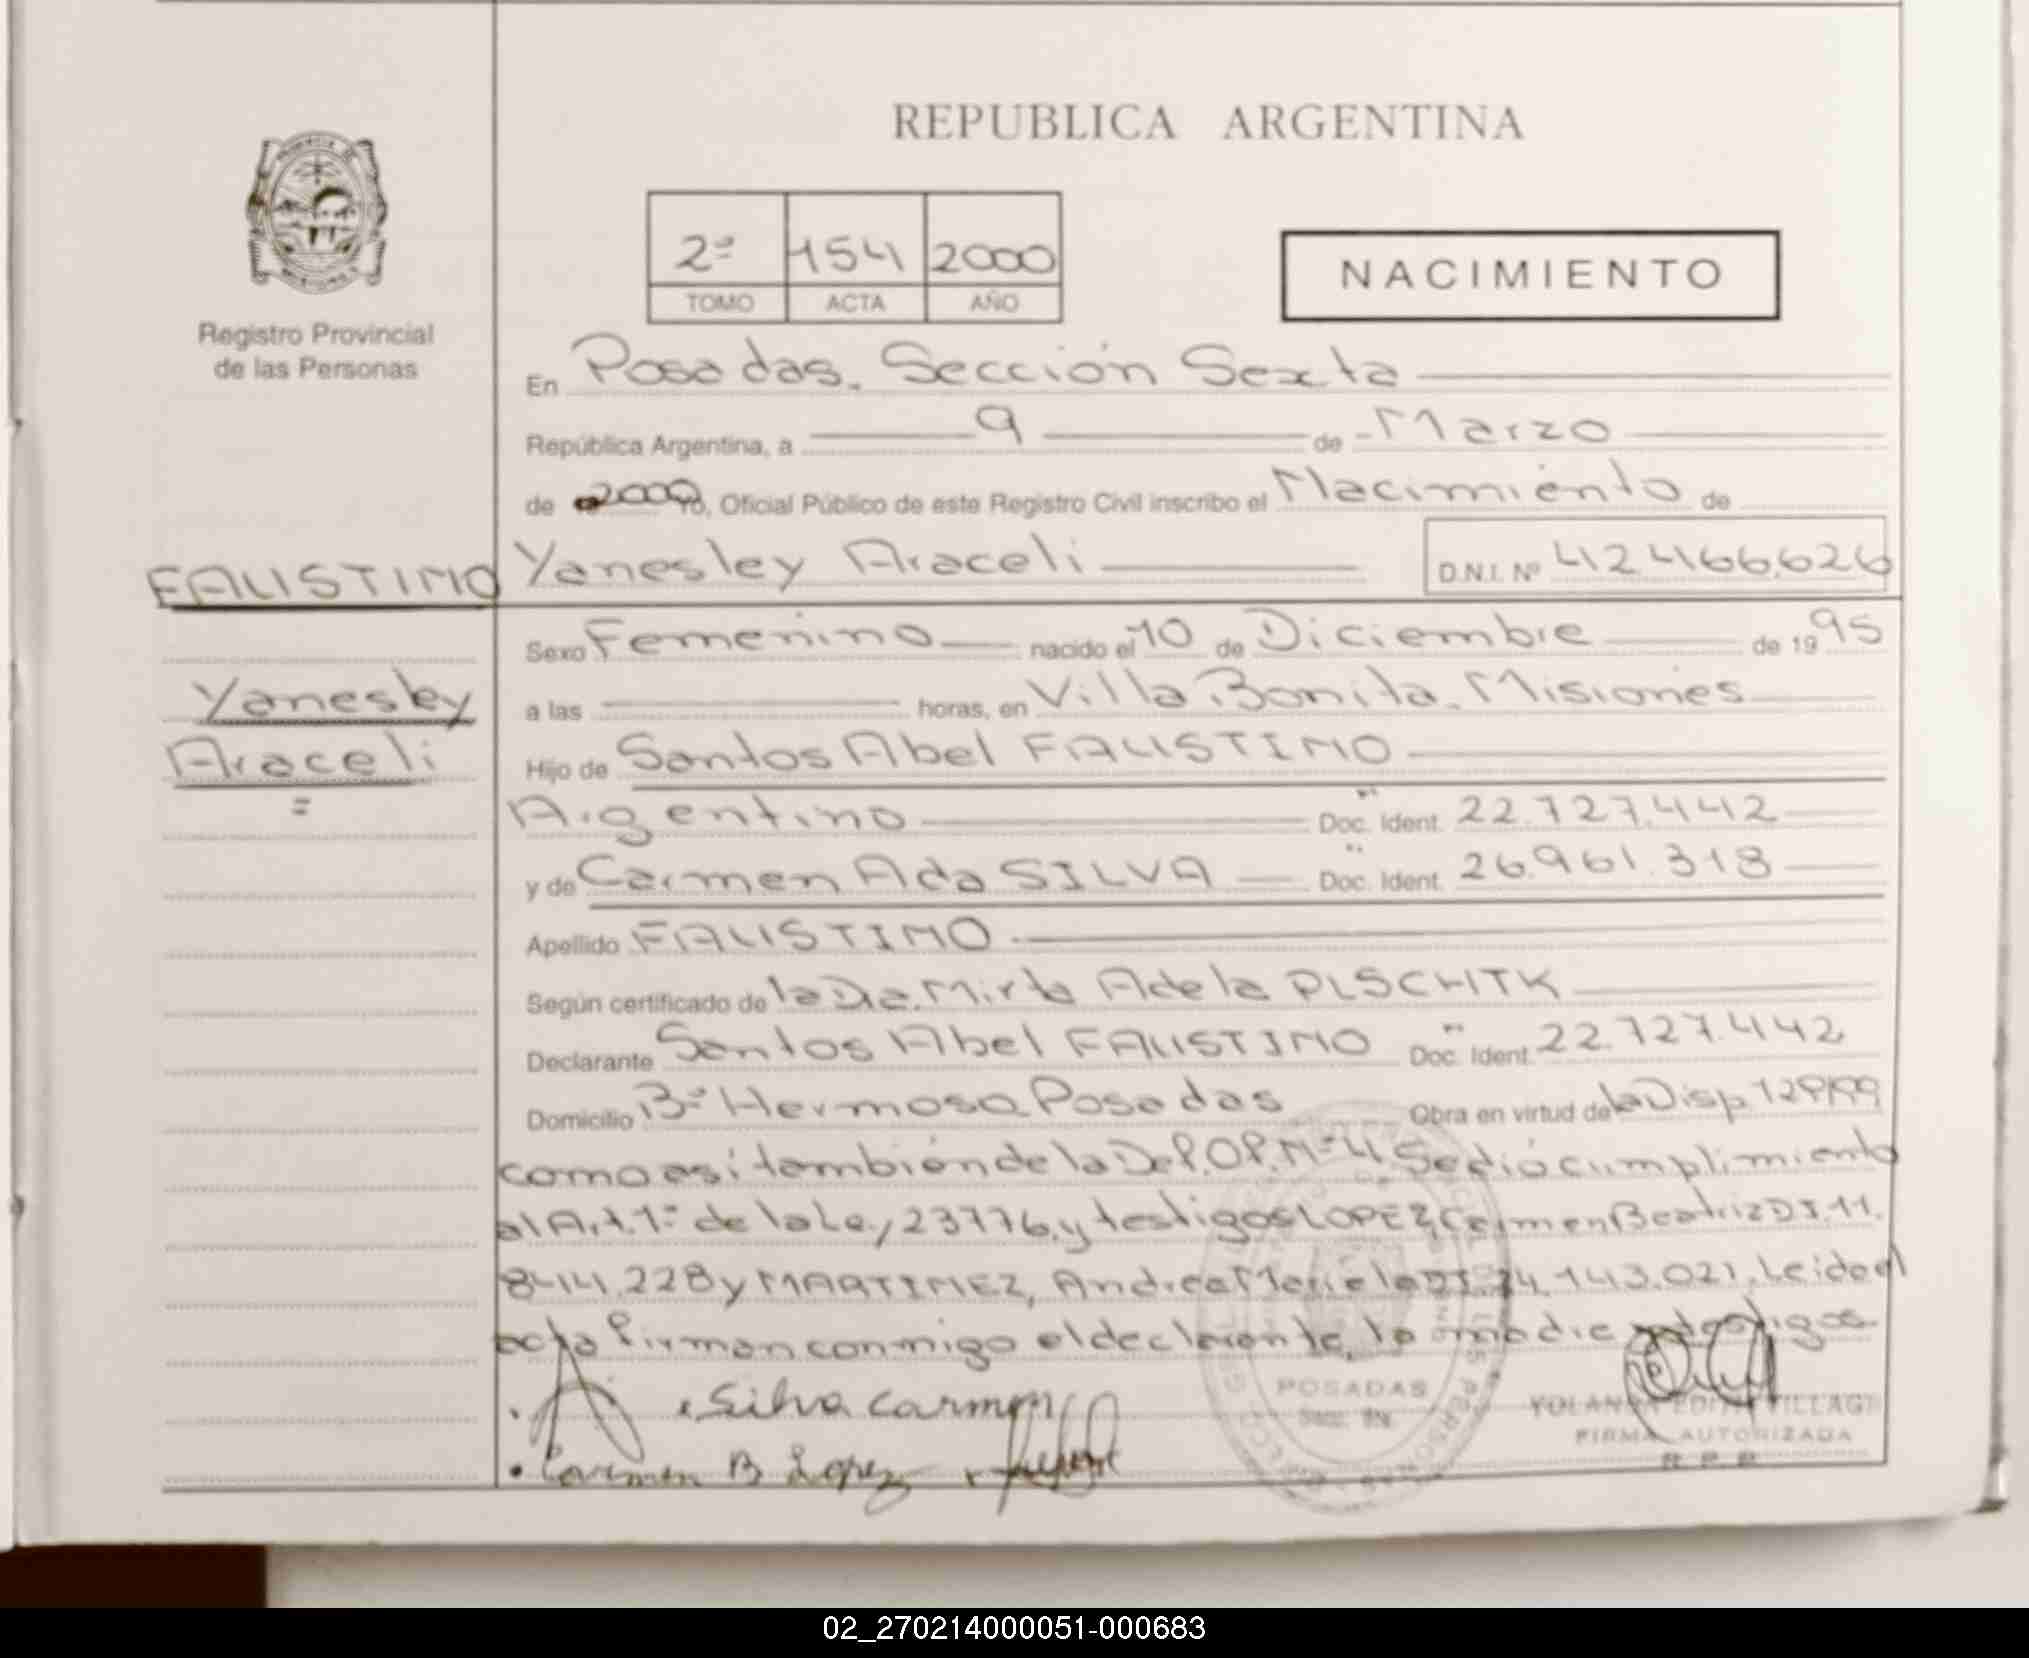 REPUBLICA ARGENTINA
2º 154 2000
TOMO ACTA AÑO
NACIMIENTO
Registro Provincial
de las Personas
En Posadas. Sección Sexta
República Argentina, a 9 de Marzo
de 2000 Yo, Oficial Público de este Registro Civil inscribo el Nacimiento de
FAUSTINO Yanesley Araceli D.N.I. Nº 42.466.626
Sexo Femenino nacido el 10 de Diciembre de 1995
Yanesley
a las horas, en Villa Bonita. Misiones
Araceli
Hijo de Santos Abel FAUSTINO
Argentino Doc. Ident. 22.727.442
y de Carmen Ada SILVA Doc. Ident. 26.961.318
Apellido FAUSTINO
Según certificado de la Dra. Mirta Adela
Declarante Santos Abel FAUSTINO Doc. Ident. 22.727.442
Domicilio Bº Hermoso Posadas Obra en virtud de la Disp
como asi también de la Nº 4. Se dió cumplimiento
al Art. 1º de la Ley 23776, y testigos LOPEZ, Carmen Beatriz DI. 11.
844.228 y MARTINEZ, Andrea Mariela DI. 143.021. Leida el
acta firman conmigo el declarante, la madre y testigos
Silva Carmen
POSADAS
YOLANDA EDITH VILLAG
FIRMA AUTORIZADA
R.P.P.
Carmen B Lopez
02_270214000051-000683